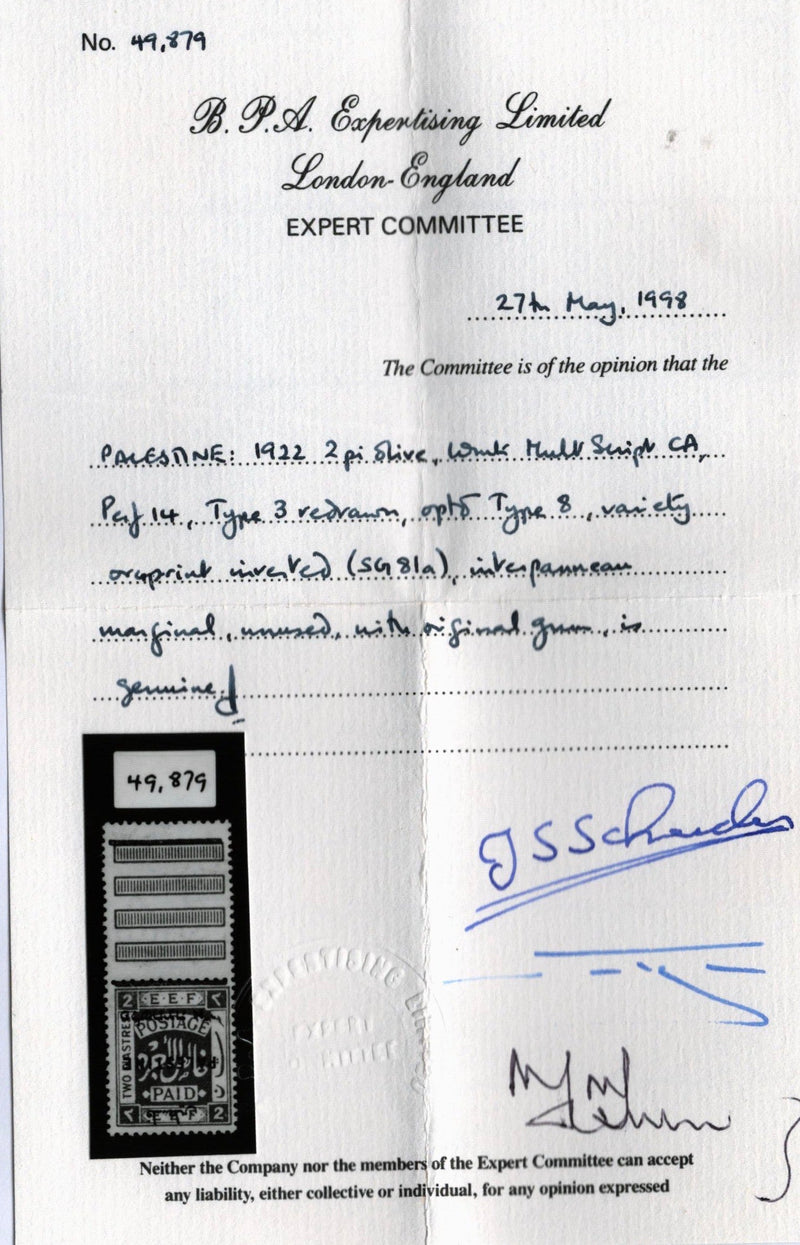 No. 49,879
B. P. A. Expertising Limited
London-England
EXPERT COMMITTEE
27th May, 1998
The Committee is of the opinion that the
PALESTINE: 1922 2pi olive, Wmk Mult Script CA,
Perf 14, Type 3 redrawn, optd Type 8, variety
overprint inverted (SG 81a), interpanneau
marginal, unused, with original gum, is
genuine
49,879
2 E.E.F ٢
POSTAGE
TWO PIASTRES
PAID
٢ E.E.F 2
EXPERTISING
EXPERT
Neither the Company nor the members of the Expert Committee can accept
any liability, either collective or individual, for any opinion expressed